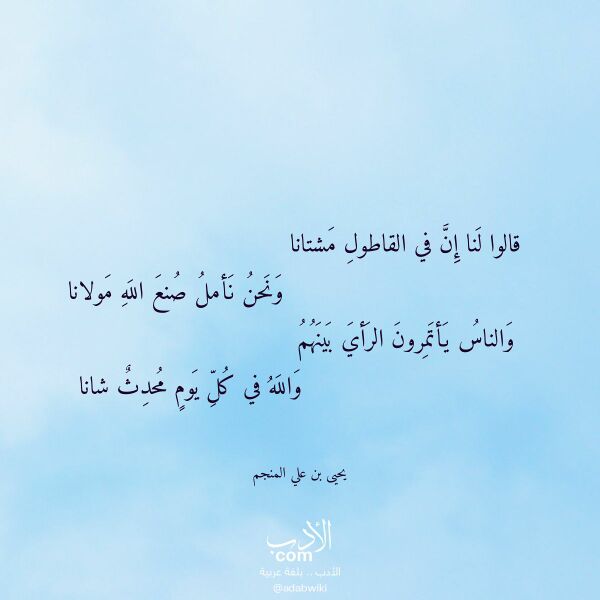 قالوا لَنا إِنَّ في القاطولِ مَشتانا
وَنَحنُ نَأملُ صُنعَ اللَهِ مَولانا
وَالناسُ يَأتَمِرونَ الرَأيَ بَينَهُمُ
وَاللَهُ في كُلِّ يَومٍ مُحدِثٌ شانا
يحيى بن علي المنجم
الأدب
.com
الأدب .. بلغة عربية
@adabwiki